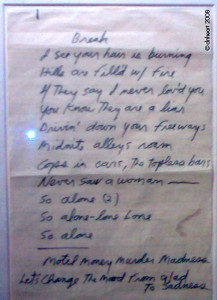 Break
I see your hair is burning
Hills are fill'd w/ Fire
If They say I never lov'd you
You Know They are a liar
Drivin' down your Freeways
Midnite alleys roam
Cops in cars, The Topless bars
Never saw a woman —
So alone (2)
So alone-lone Lone
So alone
Motel Money Murder Madness
Let's Change The Mood From glad
To Sadness
© dnheart 2008